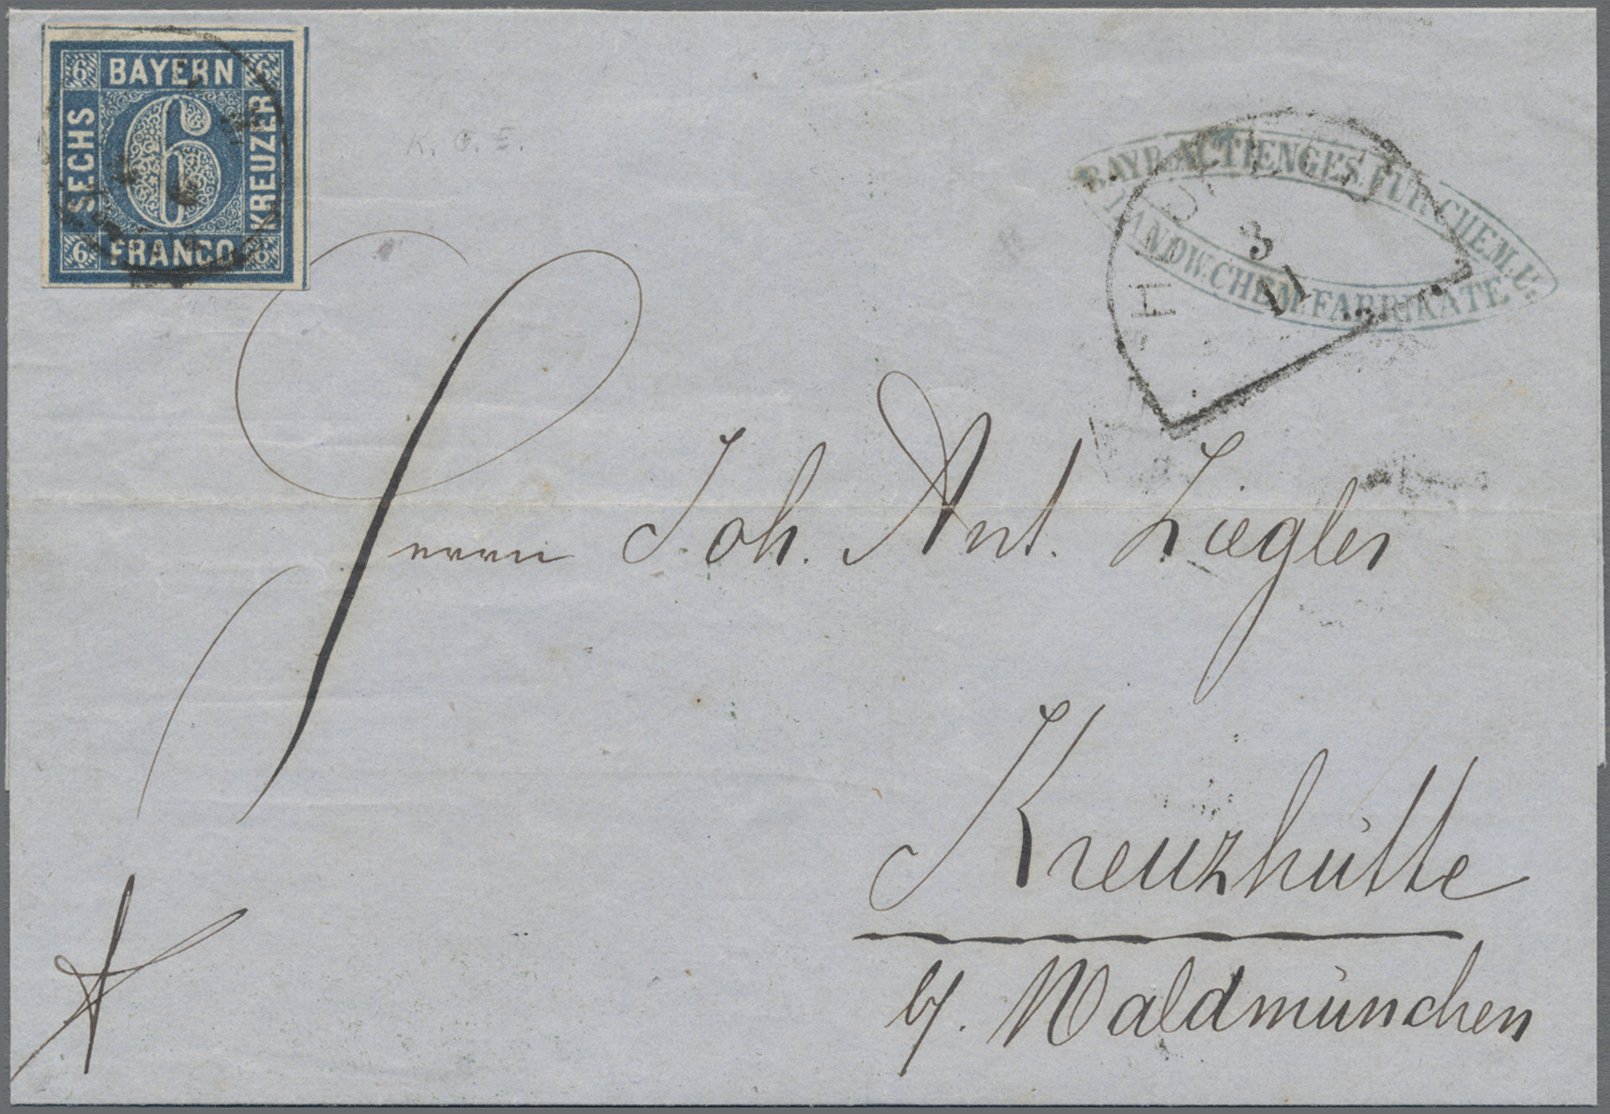 6 BAYERN 6
SECHS
6
KREUZER
6 FRANCO 6
K. G. E.
BAYR. ACTIENGES. FÜR CHEM. U.
LANDW. CHEM. FABRIKATE
3
11
Herrn Joh. Ant. Ziegler
Kreuzhütte
b/. Waldmünchen